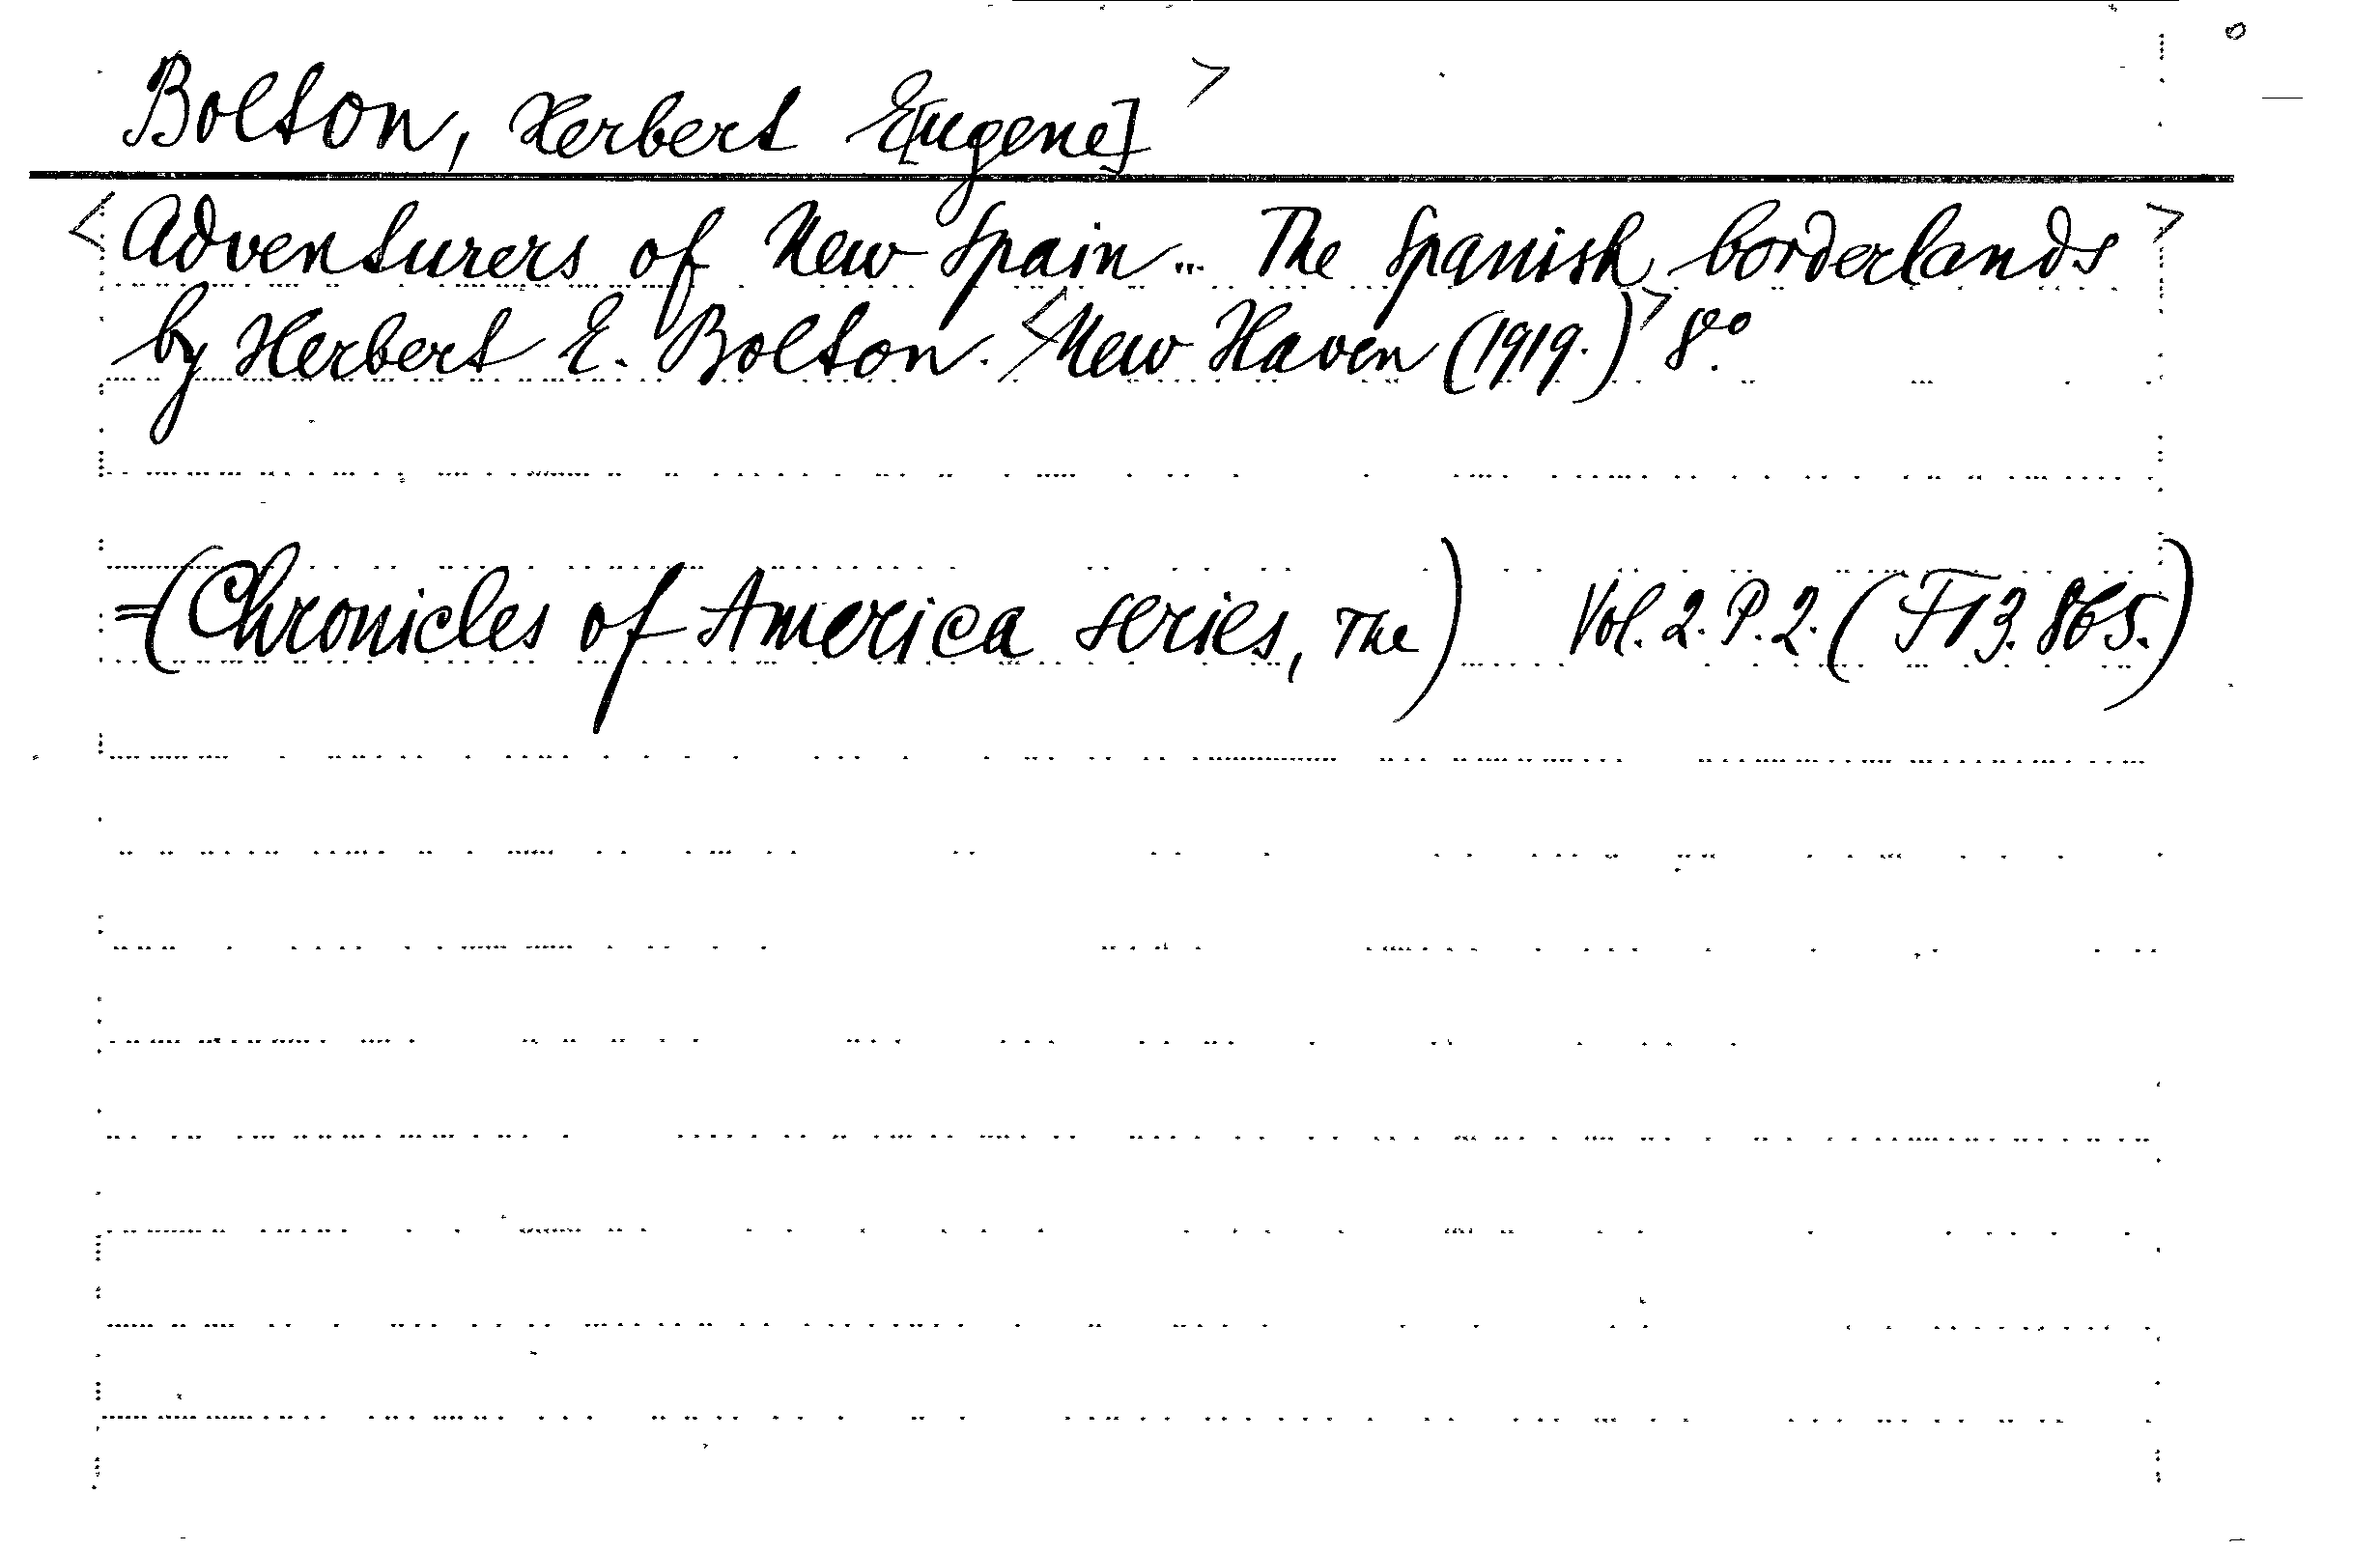 Bolton, Herbert E[ugene] >
<Adventurers of New Spain... The Spanish borderlands>
by Herbert E. Bolton. <New Haven (1919.)> 8°.
=(Chronicles of America series, The) Vol. 2. P. 2. (F13. 865.)